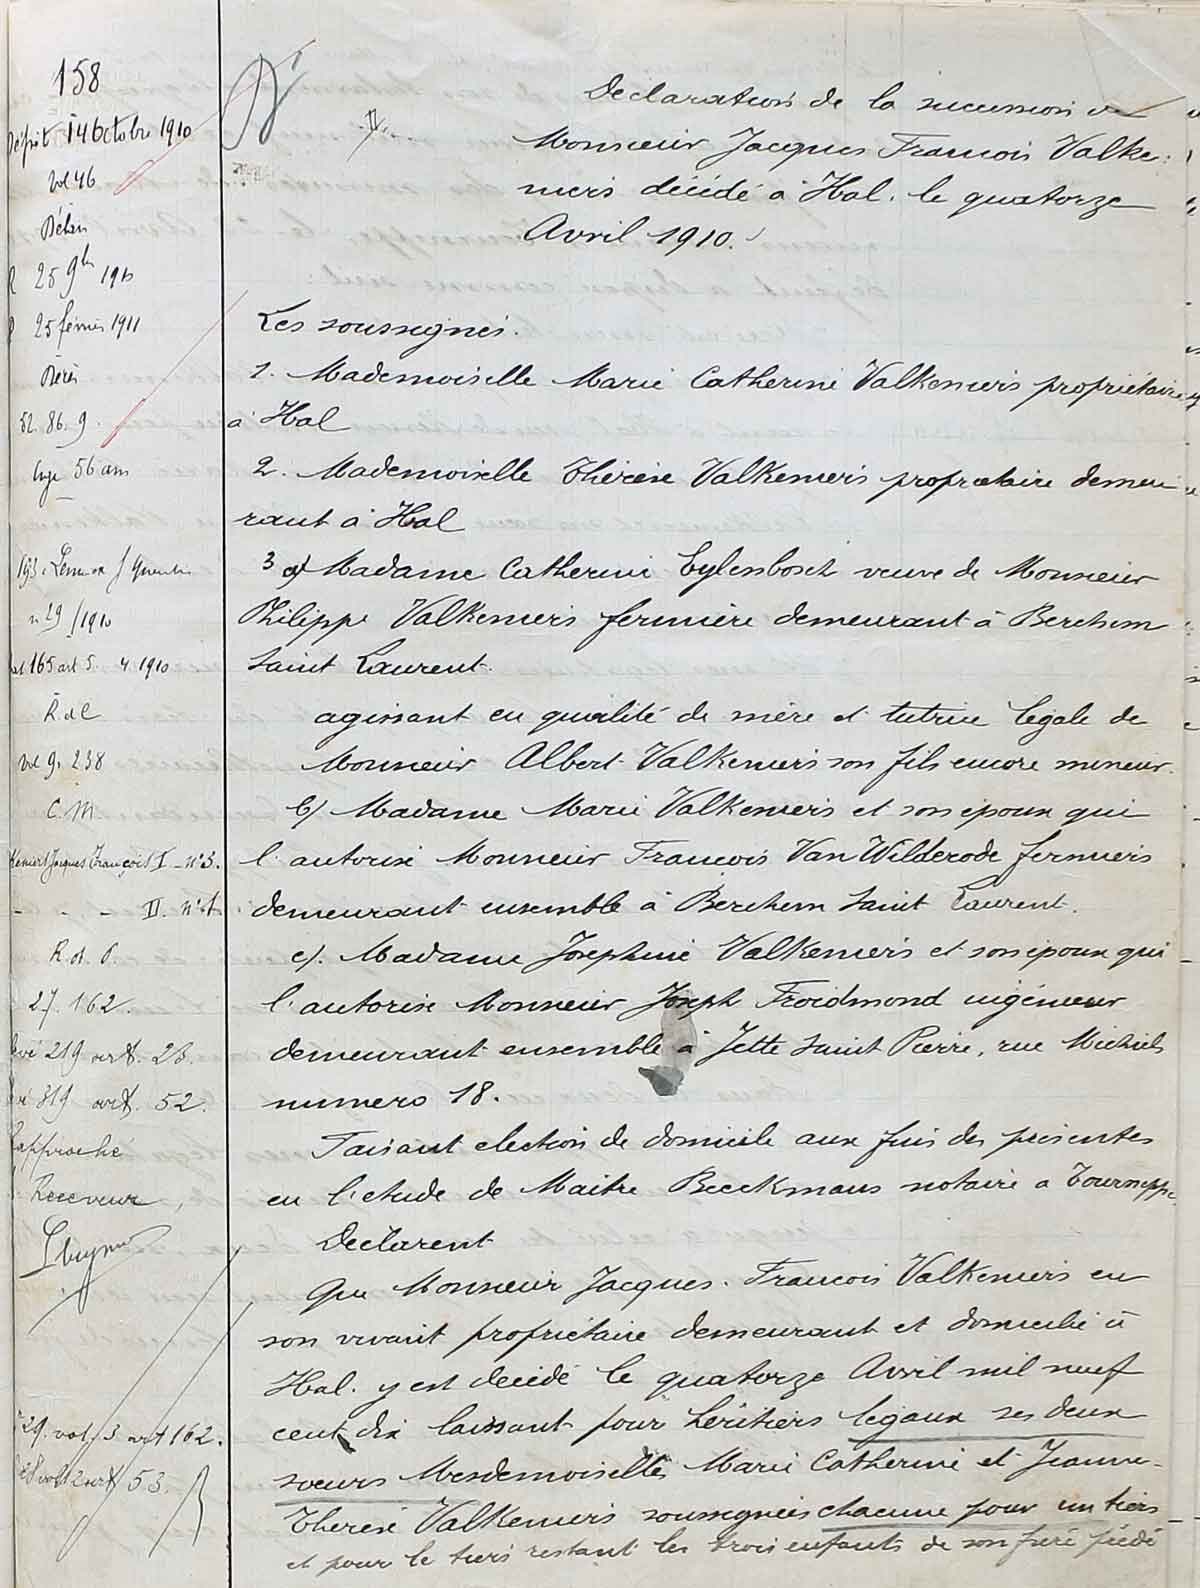 158
Dépôt 14 Octobre 1910
Vol 46
Délai
25 9bre 1910
25 février 1911
Décès
52. 86. 9.
Age 56 ans
n 29 / 1910
165 art 5. 4. 1910
R. d C
Vol 9. 238
C. M
Jacques François I - n° 3.
- - - II. n° 1
R. d. P.
27. 162.
219 art. 23.
319 art. 52.
Rapproché
Receveur
29. vol. 3 art 162.
vol 2 art 53.
N°
II
Déclaration de la succession de
Monsieur Jacques François Valke:
niers décédé à Hal. le quatorze
Avril 1910.
Les soussignés.
1. Mademoiselle Marie Catherine Valkeniers propriétaire
à Hal
2. Mademoiselle Thérèse Valkeniers propriétaire demeu
rant à Hal
3 a) Madame Catherine Eylenbosch veuve de Monsieur
Philippe Valkeniers fermière demeurant à Berchem
Saint Laurent.
agissant en qualité de mère et tutrice légale de
Monsieur Albert Valkeniers son fils encore mineur.
b) Madame Marie Valkeniers et son époux qui
l'autorise Monsieur François Van Wilderode fermiers
demeurant ensemble à Berchem Saint Laurent.
c). Madame Joséphine Valkeniers et son époux qui
l'autorise Monsieur Joseph Froidmond ingénieur
demeurant ensemble à Jette Saint Pierre, rue Michiels
numero 18.
Faisant election de domicile aux fins des présentes
en l'etude de Maitre Beeckmans notaire a Tourneppe
Declarent
Que Monsieur Jacques. François Valkeniers en
son vivant propriétaire demeurant et domicilié à
Hal. y est décédé le quatorze Avril mil neuf
cent dix laissant pour héritiers légaux ses deux
soeurs Mesdemoiselles Marie Catherine et Jeanne-
Thérèse Valkeniers soussignées chacune pour un tiers
et pour le tiers restant les trois enfants de son frère prédé